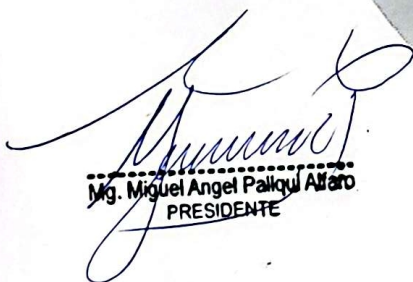 Mg. Miguel Angel Paliqui Alfaro
PRESIDENTE